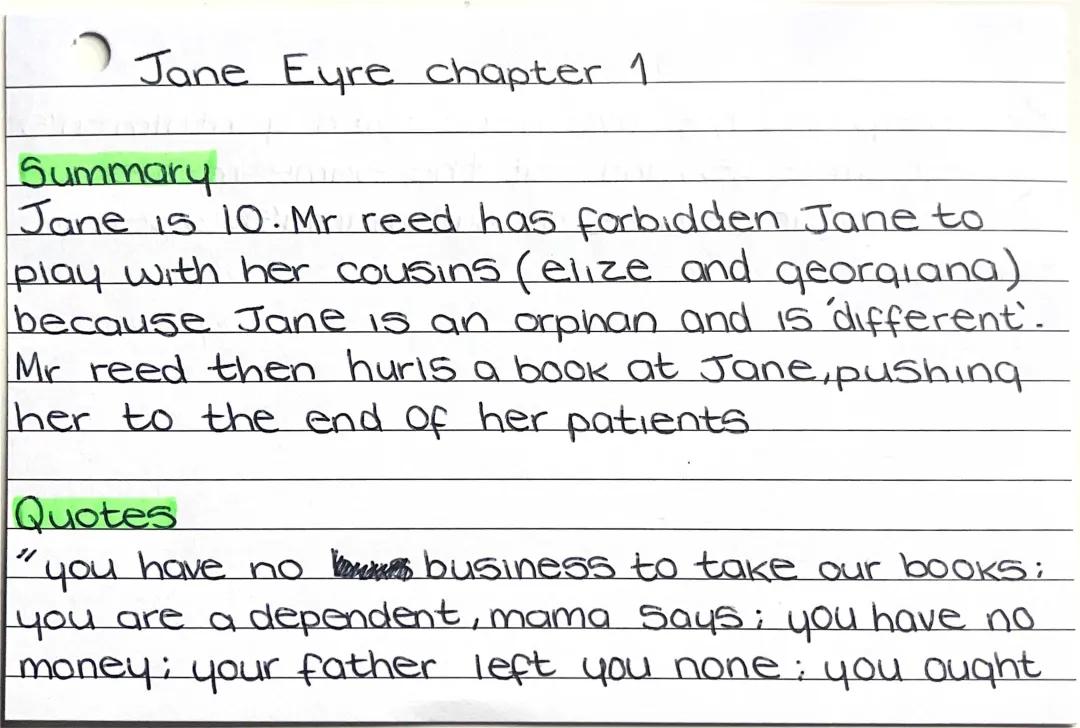 Jane Eyre chapter 1
Summary
Jane is 10. Mr reed has forbidden Jane to
play with her cousins (elize and georgiana)
because Jane is an orphan and is 'different'.
Mr reed then hurls a book at Jane, pushing
her to the end of her patients
Quotes
"you have no business to take our books;
you are a dependent, mama says; you have no
money; your father left you none; you ought